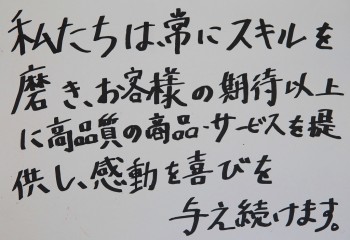 私たちは、常にスキルを
磨き、お客様の期待以上
に高品質の商品・サービスを提
供し、感動を喜びを
与え続けます。